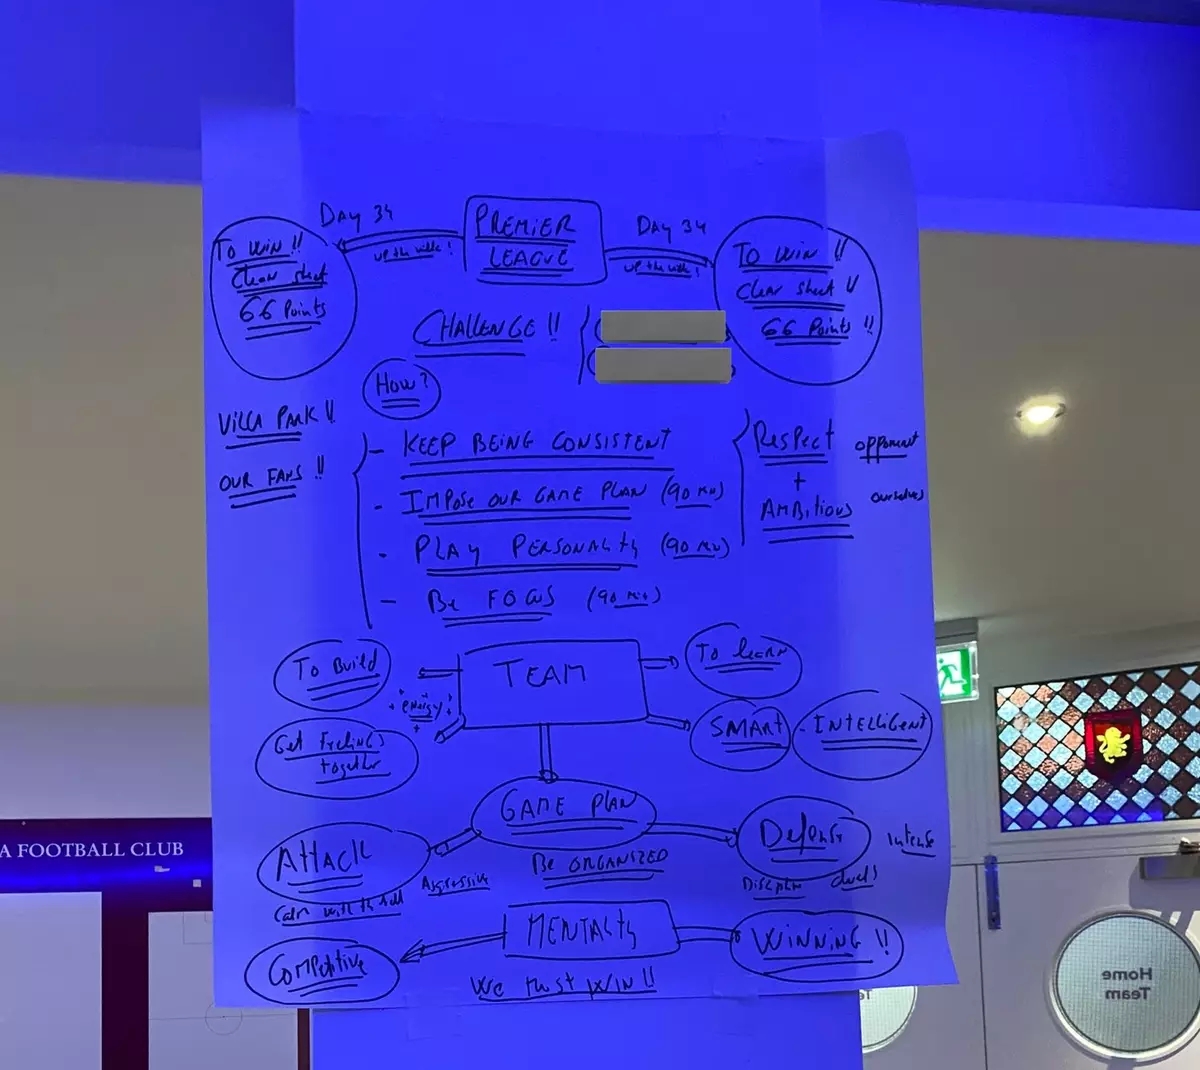 DAY 34
PREMIER
LEAGUE
DAY 34
UP the villa!
UP the villa!
TO WIN !!
Clean sheet
66 Points
TO WIN !!
Clean sheet !!
66 Points !!
CHALLENGE !!
HOW?
VILLA PARK !!
OUR FANS !!
- KEEP BEING CONSISTENT
- IMPOSE OUR GAME PLAN (90 MIN)
- PLAY PERSONALITY (90 MIN)
- BE FOCUS (90 MIN)
Respect opponent
+
AMBITIOUS ourselves
TEAM
TO BUILD
energy
Get Feelings
together
TO leARN
SMART - INTELLIGENT
GAME PLAN
BE ORGANIZED
ATTACK
Aggressive
Calm with the ball
Defense
Intense
duels
MENTALITY
COMPETITIVE
WINNING !!
We must WIN !!
A FOOTBALL CLUB
Home
Team
Te